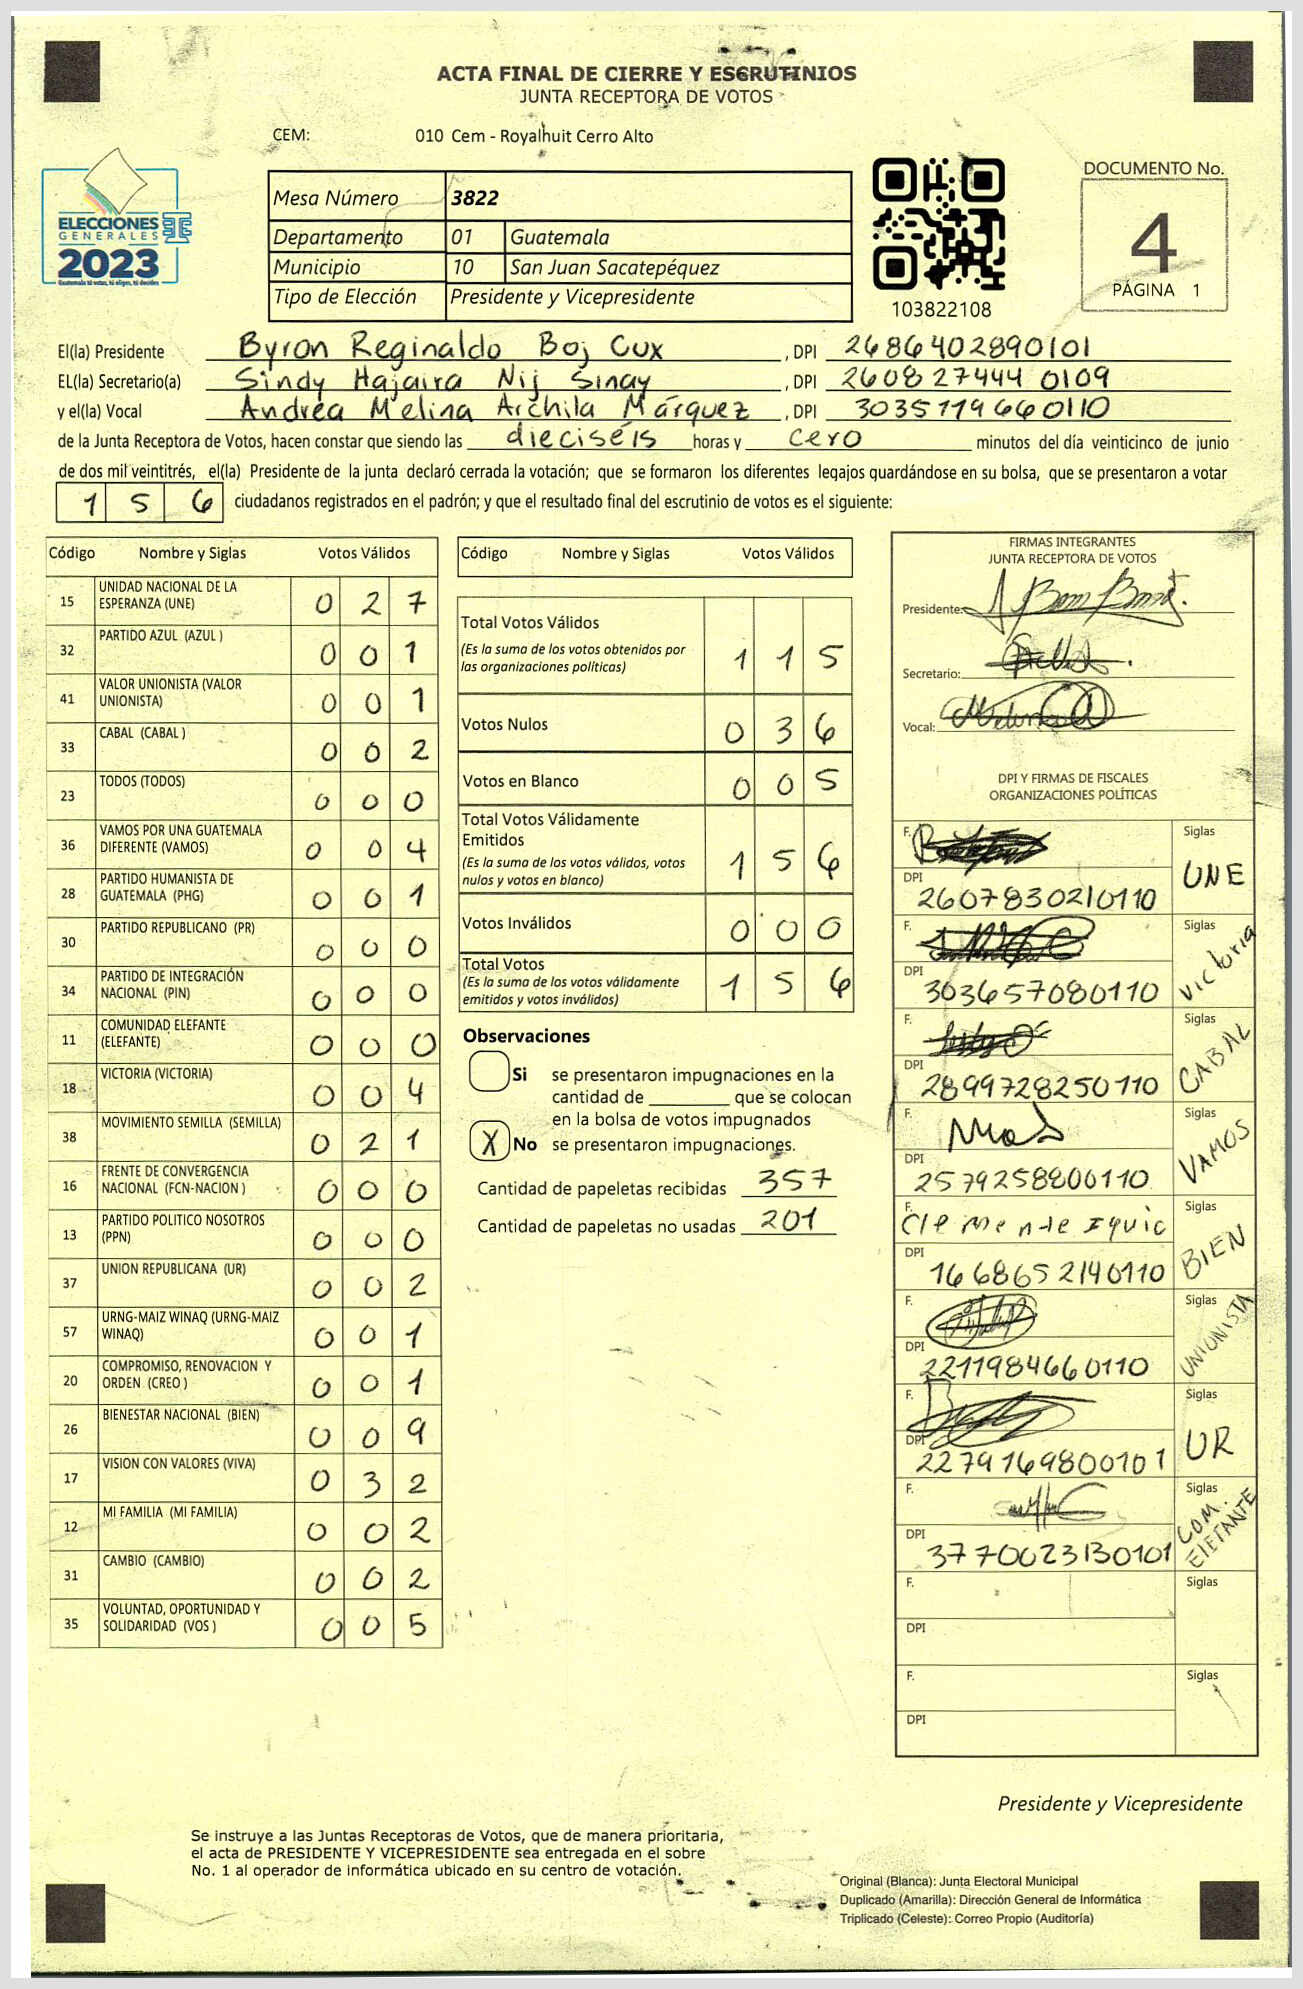 ACTA FINAL DE CIERRE Y ESCRUTINIOS
JUNTA RECEPTORA DE VOTOS
CEM: 010 Cem - Royalhuit Cerro Alto
ELECCIONES
GENERALES
2023
Guatemala tú votas, tú eliges, tú decides
TSE
Mesa Número 3822
Departamento 01 Guatemala
Municipio 10 San Juan Sacatepéquez
Tipo de Elección Presidente y Vicepresidente
103822108
DOCUMENTO No.
4
PÁGINA 1
El(la) Presidente Byron Reginaldo Boj Cux , DPI 2686402890101
EL(la) Secretario(a) Sindy Hajaira Nij Sinay , DPI 2608274440109
y el(la) Vocal Andrea Melina Archila Márquez , DPI 3035119660110
de la Junta Receptora de Votos, hacen constar que siendo las dieciséis horas y cero minutos del día veinticinco de junio
de dos mil veintitrés, el(la) Presidente de la junta declaró cerrada la votación; que se formaron los diferentes legajos guardándose en su bolsa, que se presentaron a votar
1 5 6 ciudadanos registrados en el padrón; y que el resultado final del escrutinio de votos es el siguiente:
Código Nombre y Siglas Votos Válidos
15 UNIDAD NACIONAL DE LA ESPERANZA (UNE) 0 2 7
32 PARTIDO AZUL (AZUL ) 0 0 1
41 VALOR UNIONISTA (VALOR UNIONISTA) 0 0 1
33 CABAL (CABAL ) 0 0 2
23 TODOS (TODOS) 0 0 0
36 VAMOS POR UNA GUATEMALA DIFERENTE (VAMOS) 0 0 4
28 PARTIDO HUMANISTA DE GUATEMALA (PHG) 0 0 1
30 PARTIDO REPUBLICANO (PR) 0 0 0
34 PARTIDO DE INTEGRACIÓN NACIONAL (PIN) 0 0 0
11 COMUNIDAD ELEFANTE (ELEFANTE) 0 0 0
18 VICTORIA (VICTORIA) 0 0 4
38 MOVIMIENTO SEMILLA (SEMILLA) 0 2 1
16 FRENTE DE CONVERGENCIA NACIONAL (FCN-NACION ) 0 0 0
13 PARTIDO POLITICO NOSOTROS (PPN) 0 0 0
37 UNION REPUBLICANA (UR) 0 0 2
57 URNG-MAIZ WINAQ (URNG-MAIZ WINAQ) 0 0 1
20 COMPROMISO, RENOVACION Y ORDEN (CREO ) 0 0 1
26 BIENESTAR NACIONAL (BIEN) 0 0 9
17 VISION CON VALORES (VIVA) 0 3 2
12 MI FAMILIA (MI FAMILIA) 0 0 2
31 CAMBIO (CAMBIO) 0 0 2
35 VOLUNTAD, OPORTUNIDAD Y SOLIDARIDAD (VOS ) 0 0 5
Código Nombre y Siglas Votos Válidos
Total Votos Válidos
(Es la suma de los votos obtenidos por
las organizaciones políticas) 1 1 5
Votos Nulos 0 3 6
Votos en Blanco 0 0 5
Total Votos Válidamente
Emitidos
(Es la suma de los votos válidos, votos
nulos y votos en blanco) 1 5 6
Votos Inválidos 0 0 0
Total Votos
(Es la suma de los votos válidamente
emitidos y votos inválidos) 1 5 6
Observaciones
Si se presentaron impugnaciones en la
cantidad de ________ que se colocan
en la bolsa de votos impugnados
X No se presentaron impugnaciones.
Cantidad de papeletas recibidas 357
Cantidad de papeletas no usadas 201
FIRMAS INTEGRANTES
JUNTA RECEPTORA DE VOTOS
Presidente:
Secretario:
Vocal:
DPI Y FIRMAS DE FISCALES
ORGANIZACIONES POLÍTICAS
F. Siglas UNE
DPI 2607830210110
F. Siglas Victoria
DPI 303657080110
F. Siglas CABAL
DPI 2899728250110
F. Siglas VAMOS
DPI 2579258800110
F. Clemente Iquic Siglas BIEN
DPI 1668652140110
F. Siglas UNIONISTA
DPI 2211984660110
F. Siglas UR
DPI 2279169800101
F. Siglas COM. ElEFANTE
DPI 3770023130101
F. Siglas
DPI
F. Siglas
DPI
Presidente y Vicepresidente
Se instruye a las Juntas Receptoras de Votos, que de manera prioritaria,
el acta de PRESIDENTE Y VICEPRESIDENTE sea entregada en el sobre
No. 1 al operador de informática ubicado en su centro de votación.
Original (Blanca): Junta Electoral Municipal
Duplicado (Amarilla): Dirección General de Informática
Triplicado (Celeste): Correo Propio (Auditoría)